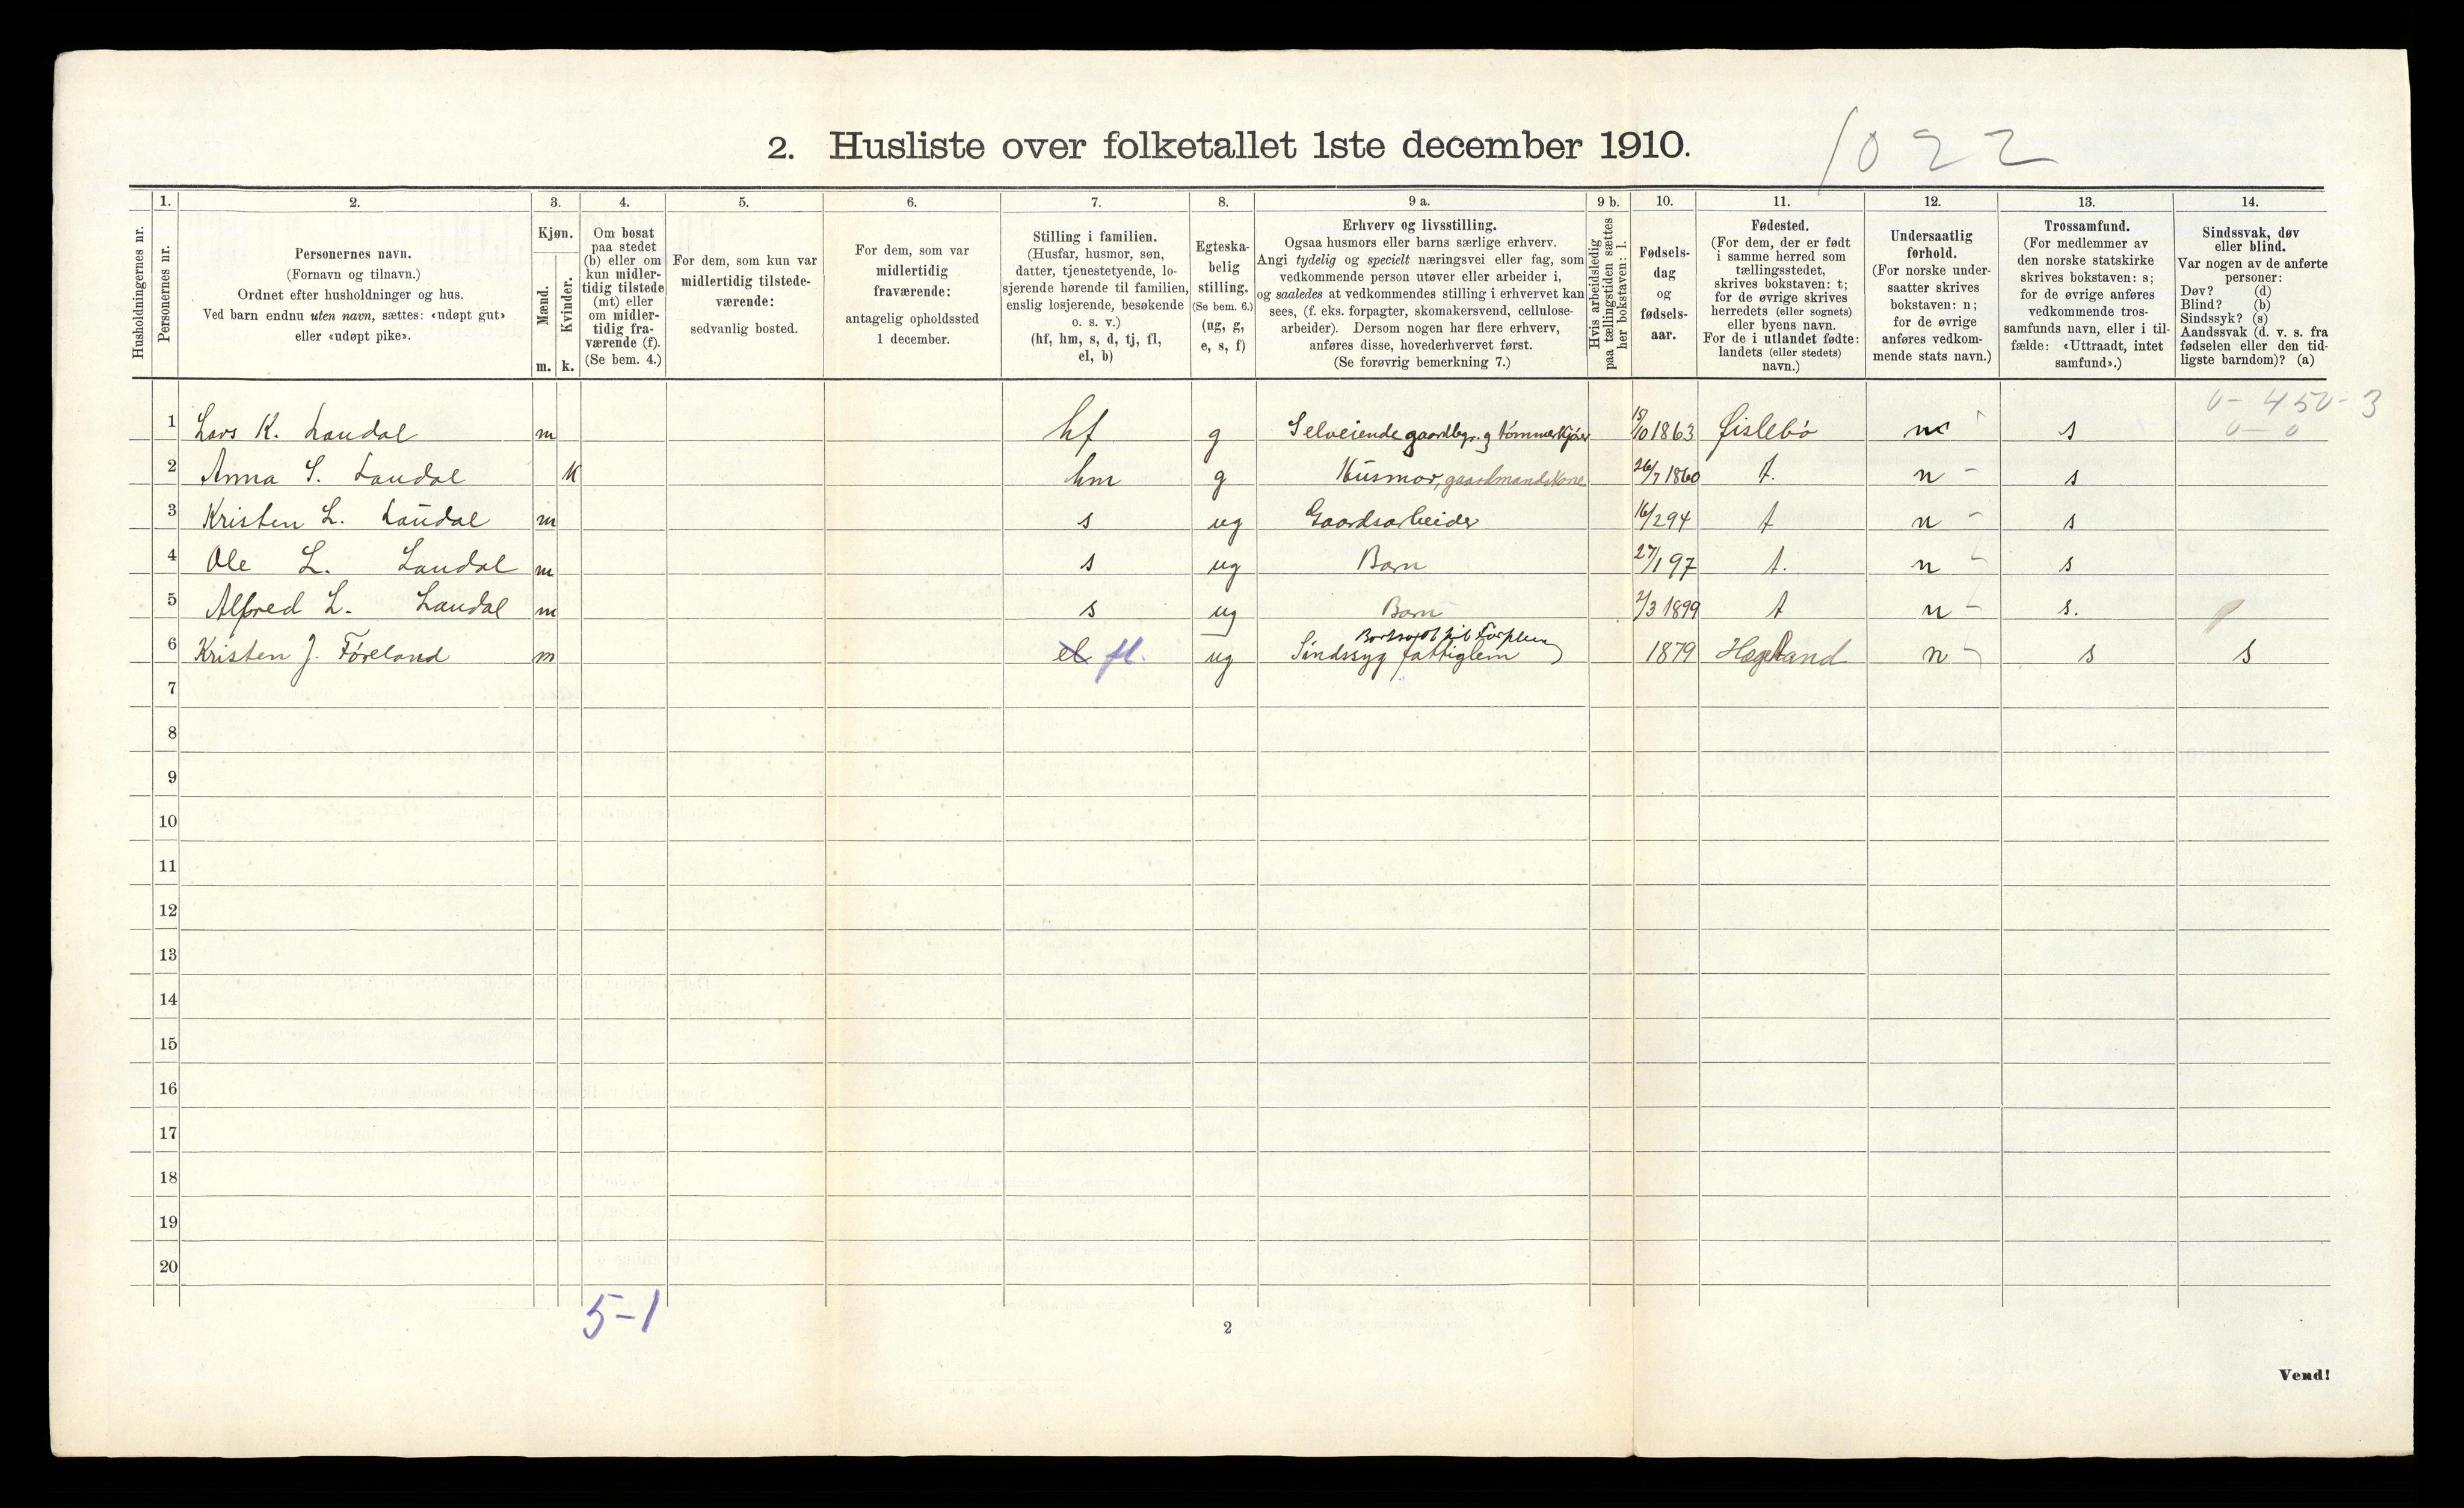 2. Husliste over folketallet 1ste december 1910.
1022
Husholdningernes nr.
1.
Personernes nr.
2.
Personernes navn.
(Fornavn og tilnavn.)
Ordnet efter husholdninger og hus.
Ved barn endnu uten navn, sættes: «udøpt gut»
eller «udøpt pike».
3.
Kjøn.
Mænd.
Kvinder.
m. k.
4.
Om bosat
paa stedet
(b) eller om
kun midler-
tidig tilstede
(mt) eller
om midler-
tidig fra-
værende (f).
(Se bem. 4.)
5.
For dem, som kun var
midlertidig tilstede-
værende:
sedvanlig bosted.
6.
For dem, som var
midlertidig
fraværende:
antagelig opholdssted
1 december.
7.
Stilling i familien.
(Husfar, husmor, søn,
datter, tjenestetyende, lo-
sjerende hørende til familien,
enslig losjerende, besøkende
o. s. v.)
(hf, hm, s, d, tj, fl,
el, b)
8.
Egteska-
belig
stilling.
(Se bem. 6.)
(ug, g,
e, s, f)
9 a.
Erhverv og livsstilling.
Ogsaa husmors eller barns særlige erhverv.
Angi tydelig og specielt næringsvei eller fag, som
vedkommende person utøver eller arbeider i,
og saaledes at vedkommendes stilling i erhvervet kan
sees, (f. eks. forpagter, skomakersvend, cellulose-
arbeider). Dersom nogen har flere erhverv,
anføres disse, hovederhvervet først.
(Se forøvrig bemerkning 7.)
9 b.
Hvis arbeidsledig
paa tællingstiden sættes
her bokstaven: l.
10.
Fødsels-
dag
og
fødsels-
aar.
11.
Fødested.
(For dem, der er født
i samme herred som
tællingsstedet,
skrives bokstaven: t;
for de øvrige skrives
herredets (eller sognets)
eller byens navn.
For de i utlandet fødte:
landets (eller stedets)
navn.)
12.
Undersaatlig
forhold.
(For norske under-
saatter skrives
bokstaven: n;
for de øvrige
anføres vedkom-
mende stats navn.)
13.
Trossamfund.
(For medlemmer av
den norske statskirke
skrives bokstaven: s;
for de øvrige anføres
vedkommende tros-
samfunds navn, eller i til-
fælde: «Uttraadt, intet
samfund».)
14.
Sindssvak, døv
eller blind.
Var nogen av de anførte
personer:
Døv? (d)
Blind? (b)
Sindssyk? (s)
Aandssvak (d. v. s. fra
fødselen eller den tid-
ligste barndom)? (a)
0- 450-3
0-0
1 Lars K. Laudal m hf g Selveiende gaardbgr. g tømmerkjører 18/10 1863 Øislebø n s
2 Anna S. Laudal k hm g Husmor, gaardmandskone 26/7 1860 t. n - s
3 Kristen L. Laudal m s ug Gaardsarbeider 16/2 94 t n - s
4 Ole L. Laudal m s ug Barn 27/1 97 t. n - s
5 Alfred L. Laudal m s ug Barn 2/3 1899 t n - s.
Bortsat til Forpleining
6 Kristen J. Føreland m el fl. ug Sindssyg fattiglem 1879 Hægeland n - s s
7
8
9
10
11
12
13
14
15
16
17
18
19
20
5-1
2
Vend!